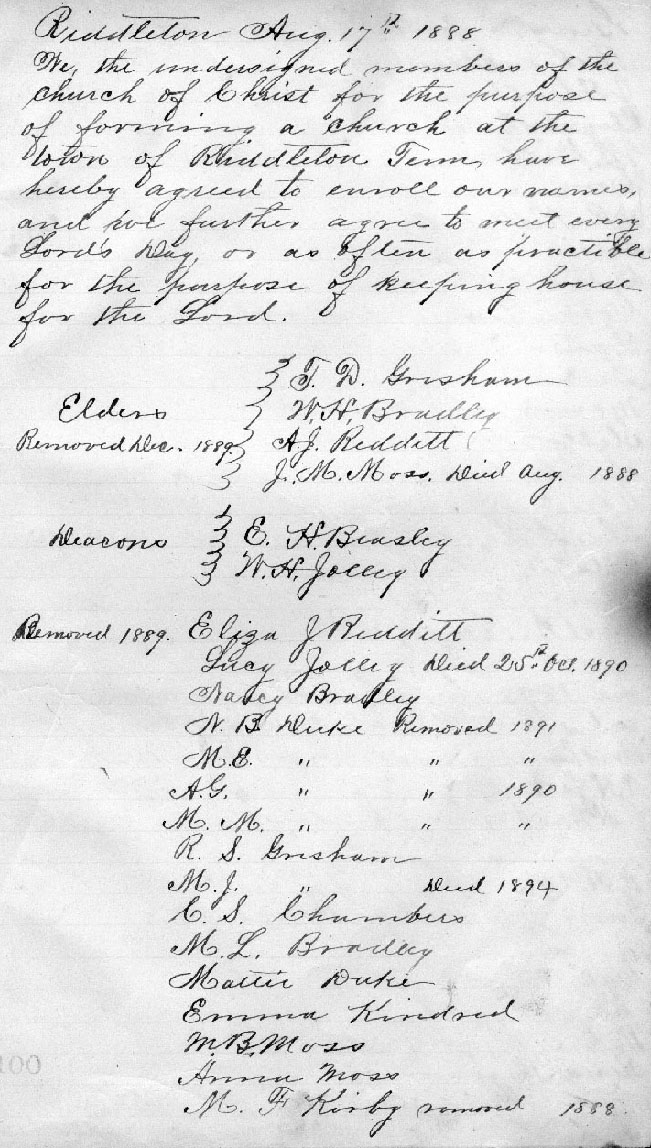 Riddleton Aug. 17th 1888
We, the undersigned members of the
church of Christ for the purpose
of forming a church at the
town of Riddleton Tenn, have
hereby agreed to enroll our names,
and we further agree to meet every
Lord's Day, or as often as practible
for the purpose of keeping house
for the Lord.
T. D. Grisham
Elders W. H. Bradley
Removed Dec. 1889 A J. Redditt
J. M. Moss. Died Aug. 1888
Deacons E. H. Beasley
W. H. Jolley
Removed 1889. Eliza J Redditt
Lucy Jolley Died 25th Oct. 1890
Nancy Bradley
N. B. Duke Removed 1891
M. E. " " "
A. G. " " 1890
M. M. " " "
R. S. Grisham
M. J. " Died 1894
C. S. Chambers
M. L. Bradley
Mattie Duke
Emma Kindred
M. B. Moss
Anna Moss
M. F Kirby removed 1888.